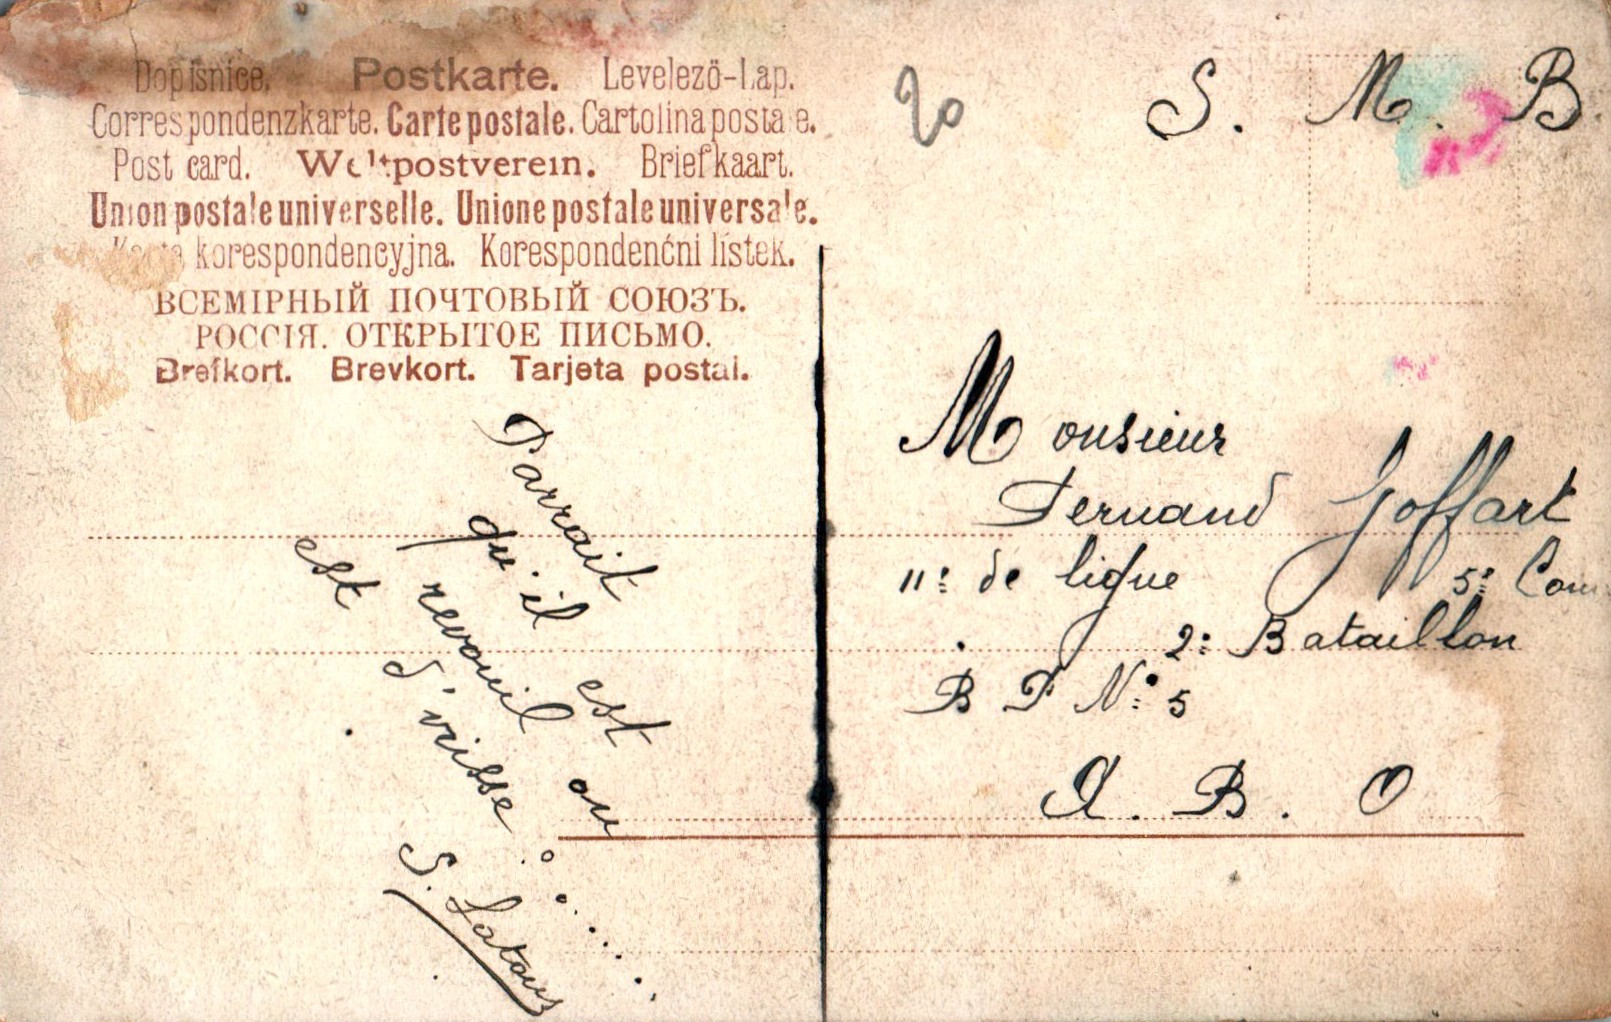 Dopisnice. Postkarte. Levelezö-Lap.
Correspondenzkarte. Carte postale. Cartolina postale.
Post card. Weltpostverein. Briefkaart.
Union postale universelle. Unione postale universale.
Karta korespondencyjna. Korespondenčni listek.
ВСЕМІРНЫЙ ПОЧТОВЫЙ СОЮЗЪ.
РОССІЯ. ОТКРЫТОЕ ПИСЬМО.
Brefkort. Brevkort. Tarjeta postal.
20
S. M. B.
Parrait qu'il est ou
est revouil d'vuisse
S. Latour
Monsieur
Fernand Goffart
11e de ligne 5e Com
2e Bataillon
B P No 5
A. B. O